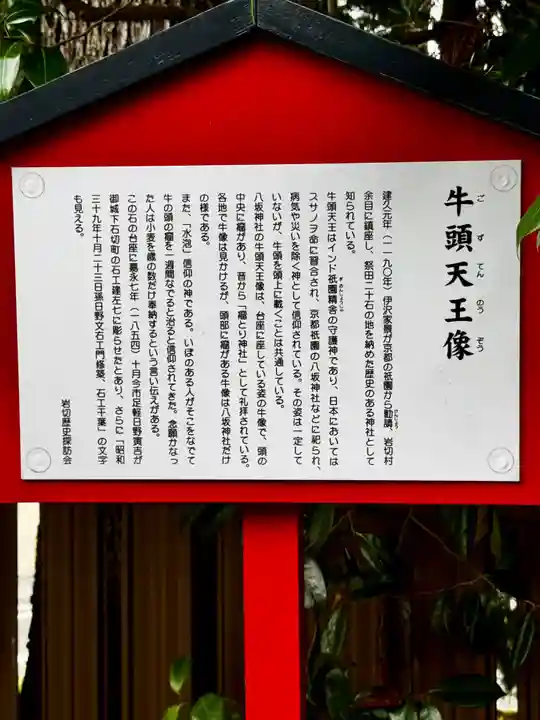 牛頭天王像
ごずてんのうぞう
建久元年（一一九〇年）伊沢家景が京都の祇園から勧請、岩切村
かんじょう
余目に鎮座し、祭田二十石の地を納めた歴史のある神社として
知られている。
牛頭天王はインド祇園精舎の守護神であり、日本においては
ぎおんしょうじゃ
スサノヲ命に習合され、京都祇園の八坂神社などに祀られ、
病気や災いを除く神として信仰されている。その姿は一定して
いないが、牛頭を頭上に戴くことは共通している。
八坂神社の牛頭天王像は、台座に座している姿の牛像で、頭の
中央に瘤があり、昔から「瘤とり神社」として礼拝されている。
各地で牛像は見かけるが、頭部に瘤がある牛像は八坂神社だけ
の様である。
また、「水泡」信仰の神である。いぼのある人がそこをなでて
牛の頭の瘤を一週間なでると治ると信仰されてきた。念願かなっ
た人は小麦を歳の数だけ奉納するという言い伝えがある。
この石の台座に嘉永七年（一八五四）十月今市足軽日野寅吉が
御城下石切町の石工建左七に彫らせたとあり、さらに「昭和
三十九年十月二十三日孫日野文右エ門修築、石工千葉」の文字
も見える。
岩切歴史探訪会